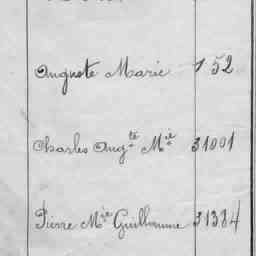 Auguste Marie 152
Charles Aug.te M.ie 31001
Pierre M.ie Guillaume 31384